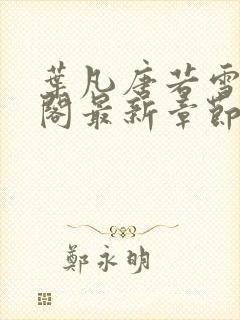 葉凡唐若雪
閣最新章節
鄭永明